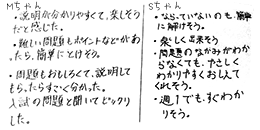 Mちゃん
・説明が分かりやすくて、楽しそう
だと感じた。
・難しい問題もポイントなどがあ
ったら、簡単にとけそう。
・問題もおもしろくて、説明して
もらったらすぐ分かった。
入試の問題と聞いてビックリ
した。
Sちゃん
・ならっていないのも、簡単
に解けそう。
・楽しく出来そう
・問題のながみがわか
らなくても、やさしく
わかりやすくおしえて
くれそう。
・週1でも、すぐわか
りそう。